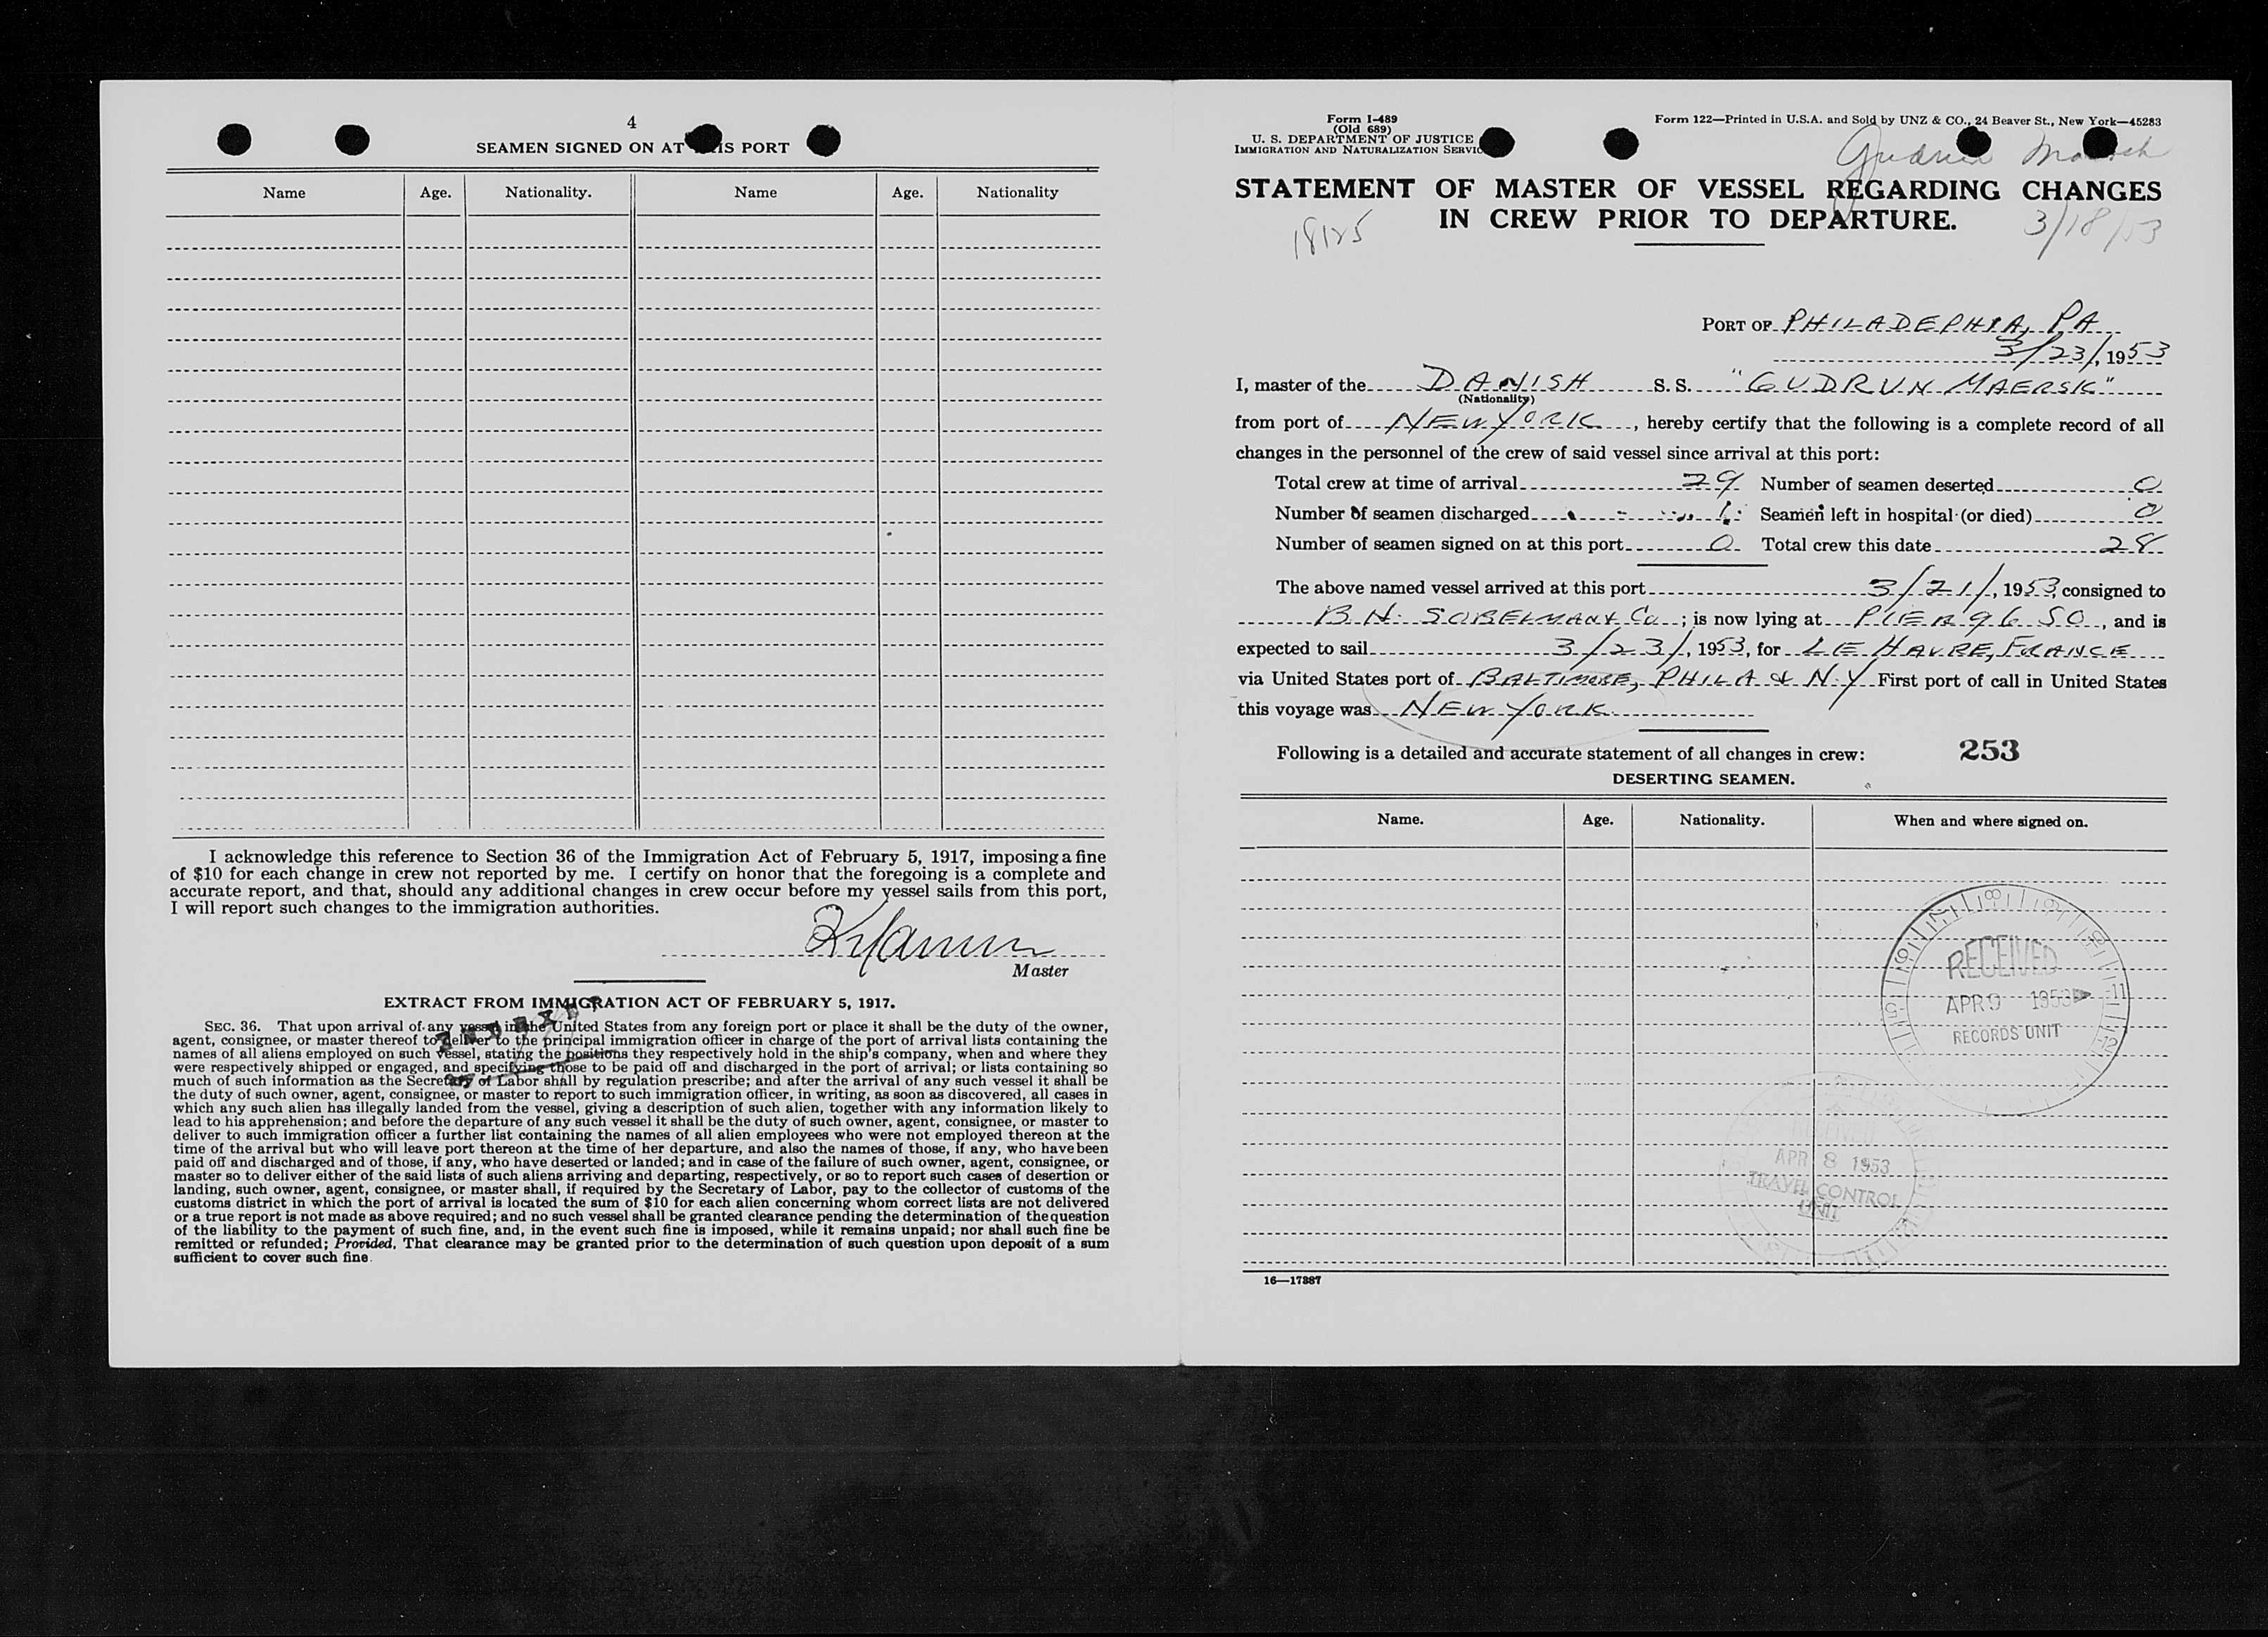 4
SEAMEN SIGNED ON AT THIS PORT
Name Age. Nationality. Name Age. Nationality
I acknowledge this reference to Section 36 of the Immigration Act of February 5, 1917, imposing a fine
of $10 for each change in crew not reported by me. I certify on honor that the foregoing is a complete and
accurate report, and that, should any additional changes in crew occur before my vessel sails from this port,
I will report such changes to the immigration authorities.
Master
EXTRACT FROM IMMIGRATION ACT OF FEBRUARY 5, 1917.
SEC. 36. That upon arrival of any vessel in the United States from any foreign port or place it shall be the duty of the owner,
agent, consignee, or master thereof to deliver to the principal immigration officer in charge of the port of arrival lists containing the
names of all aliens employed on such vessel, stating the positions they respectively hold in the ship's company, when and where they
were respectively shipped or engaged, and specifying those to be paid off and discharged in the port of arrival; or lists containing so
much of such information as the Secretary of Labor shall by regulation prescribe; and after the arrival of any such vessel it shall be
the duty of such owner, agent, consignee, or master to report to such immigration officer, in writing, as soon as discovered, all cases in
which any such alien has illegally landed from the vessel, giving a description of such alien, together with any information likely to
lead to his apprehension; and before the departure of any such vessel it shall be the duty of such owner, agent, consignee, or master to
deliver to such immigration officer a further list containing the names of all alien employees who were not employed thereon at the
time of the arrival but who will leave port thereon at the time of her departure, and also the names of those, if any, who have been
paid off and discharged and of those, if any, who have deserted or landed; and in case of the failure of such owner, agent, consignee, or
master so to deliver either of the said lists of such aliens arriving and departing, respectively, or so to report such cases of desertion or
landing, such owner, agent, consignee, or master shall, if required by the Secretary of Labor, pay to the collector of customs of the
customs district in which the port of arrival is located the sum of $10 for each alien concerning whom correct lists are not delivered
or a true report is not made as above required; and no such vessel shall be granted clearance pending the determination of the question
of the liability to the payment of such fine, and, in the event such fine is imposed, while it remains unpaid; nor shall such fine be
remitted or refunded; Provided, That clearance may be granted prior to the determination of such question upon deposit of a sum
sufficient to cover such fine.
Form I-489
(Old 689)
U. S. DEPARTMENT OF JUSTICE
IMMIGRATION AND NATURALIZATION SERVICE
Form 122—Printed in U.S.A. and Sold by UNZ & CO., 24 Beaver St., New York—45283
Gudrun Maersk
STATEMENT OF MASTER OF VESSEL REGARDING CHANGES
IN CREW PRIOR TO DEPARTURE.
18125 3/18/53
PORT OF PHILADEPHIA, PA
3/23/, 1953
I, master of the DANISH S. S. "GUDRUN MAERSK"
(Nationality)
from port of NEW YORK, hereby certify that the following is a complete record of all
changes in the personnel of the crew of said vessel since arrival at this port:
Total crew at time of arrival 29 Number of seamen deserted 0
Number of seamen discharged 1 Seamen left in hospital (or died) 0
Number of seamen signed on at this port 0 Total crew this date 28
The above named vessel arrived at this port 3/21/, 1953, consigned to
B. N. SOBELMAN & Co. ; is now lying at PIER 96 SO, and is
expected to sail 3/23/, 1953, for LE HAVRE, FRANCE
via United States port of BALTIMORE, PHILA & N.Y First port of call in United States
this voyage was NEW YORK
Following is a detailed and accurate statement of all changes in crew: 253
DESERTING SEAMEN.
Name. Age. Nationality. When and where signed on.
RECEIVED
APR 9 1953
RECORDS UNIT
RECEIVED
APR 8 1953
TRAVEL CONTROL
UNIT
16—17387